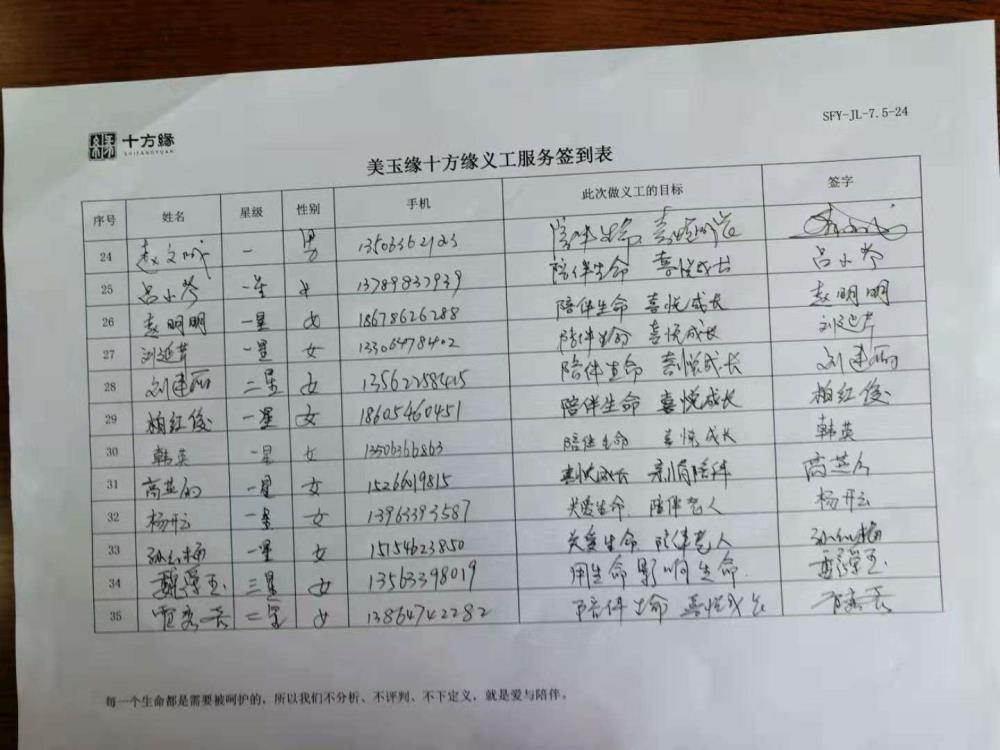 十方缘
SHIFANGYUAN
SFY-JL-7.5-24
美玉缘十方缘义工服务签到表
序号 姓名 星级 性别 手机 此次做义工的目标 签字
24 赵文成 一 男 13503362123 陪伴生命 喜悦成长
25 吕小芩 一星 女 13789837939 陪伴生命 喜悦成长 吕小芩
26 赵明明 一星 女 18678626288 陪伴生命 喜悦成长 赵明明
27 刘延芹 一星 女 13306478402 陪伴生命 喜悦成长 刘延芹
28 刘建丽 二星 女 13562258415 陪伴生命 喜悦成长 刘建丽
29 柏红俊 一星 女 18605460451 陪伴生命 喜悦成长 柏红俊
30 韩英 一星 女 13506366863 陪伴生命 喜悦成长 韩英
31 高英 一星 女 15266019815 喜悦成长 亲情陪伴 高英
32 杨开云 一星 女 13963393587 关爱生命 陪伴老人 杨开云
33 一星 女 15154623850 关爱生命 陪伴老人
34 三星 女 13563398019 用生命影响生命
35 二星 女 13864742282 陪伴生命 喜悦成长
每一个生命都是需要被呵护的，所以我们不分析、不评判、不下定义，就是爱与陪伴。